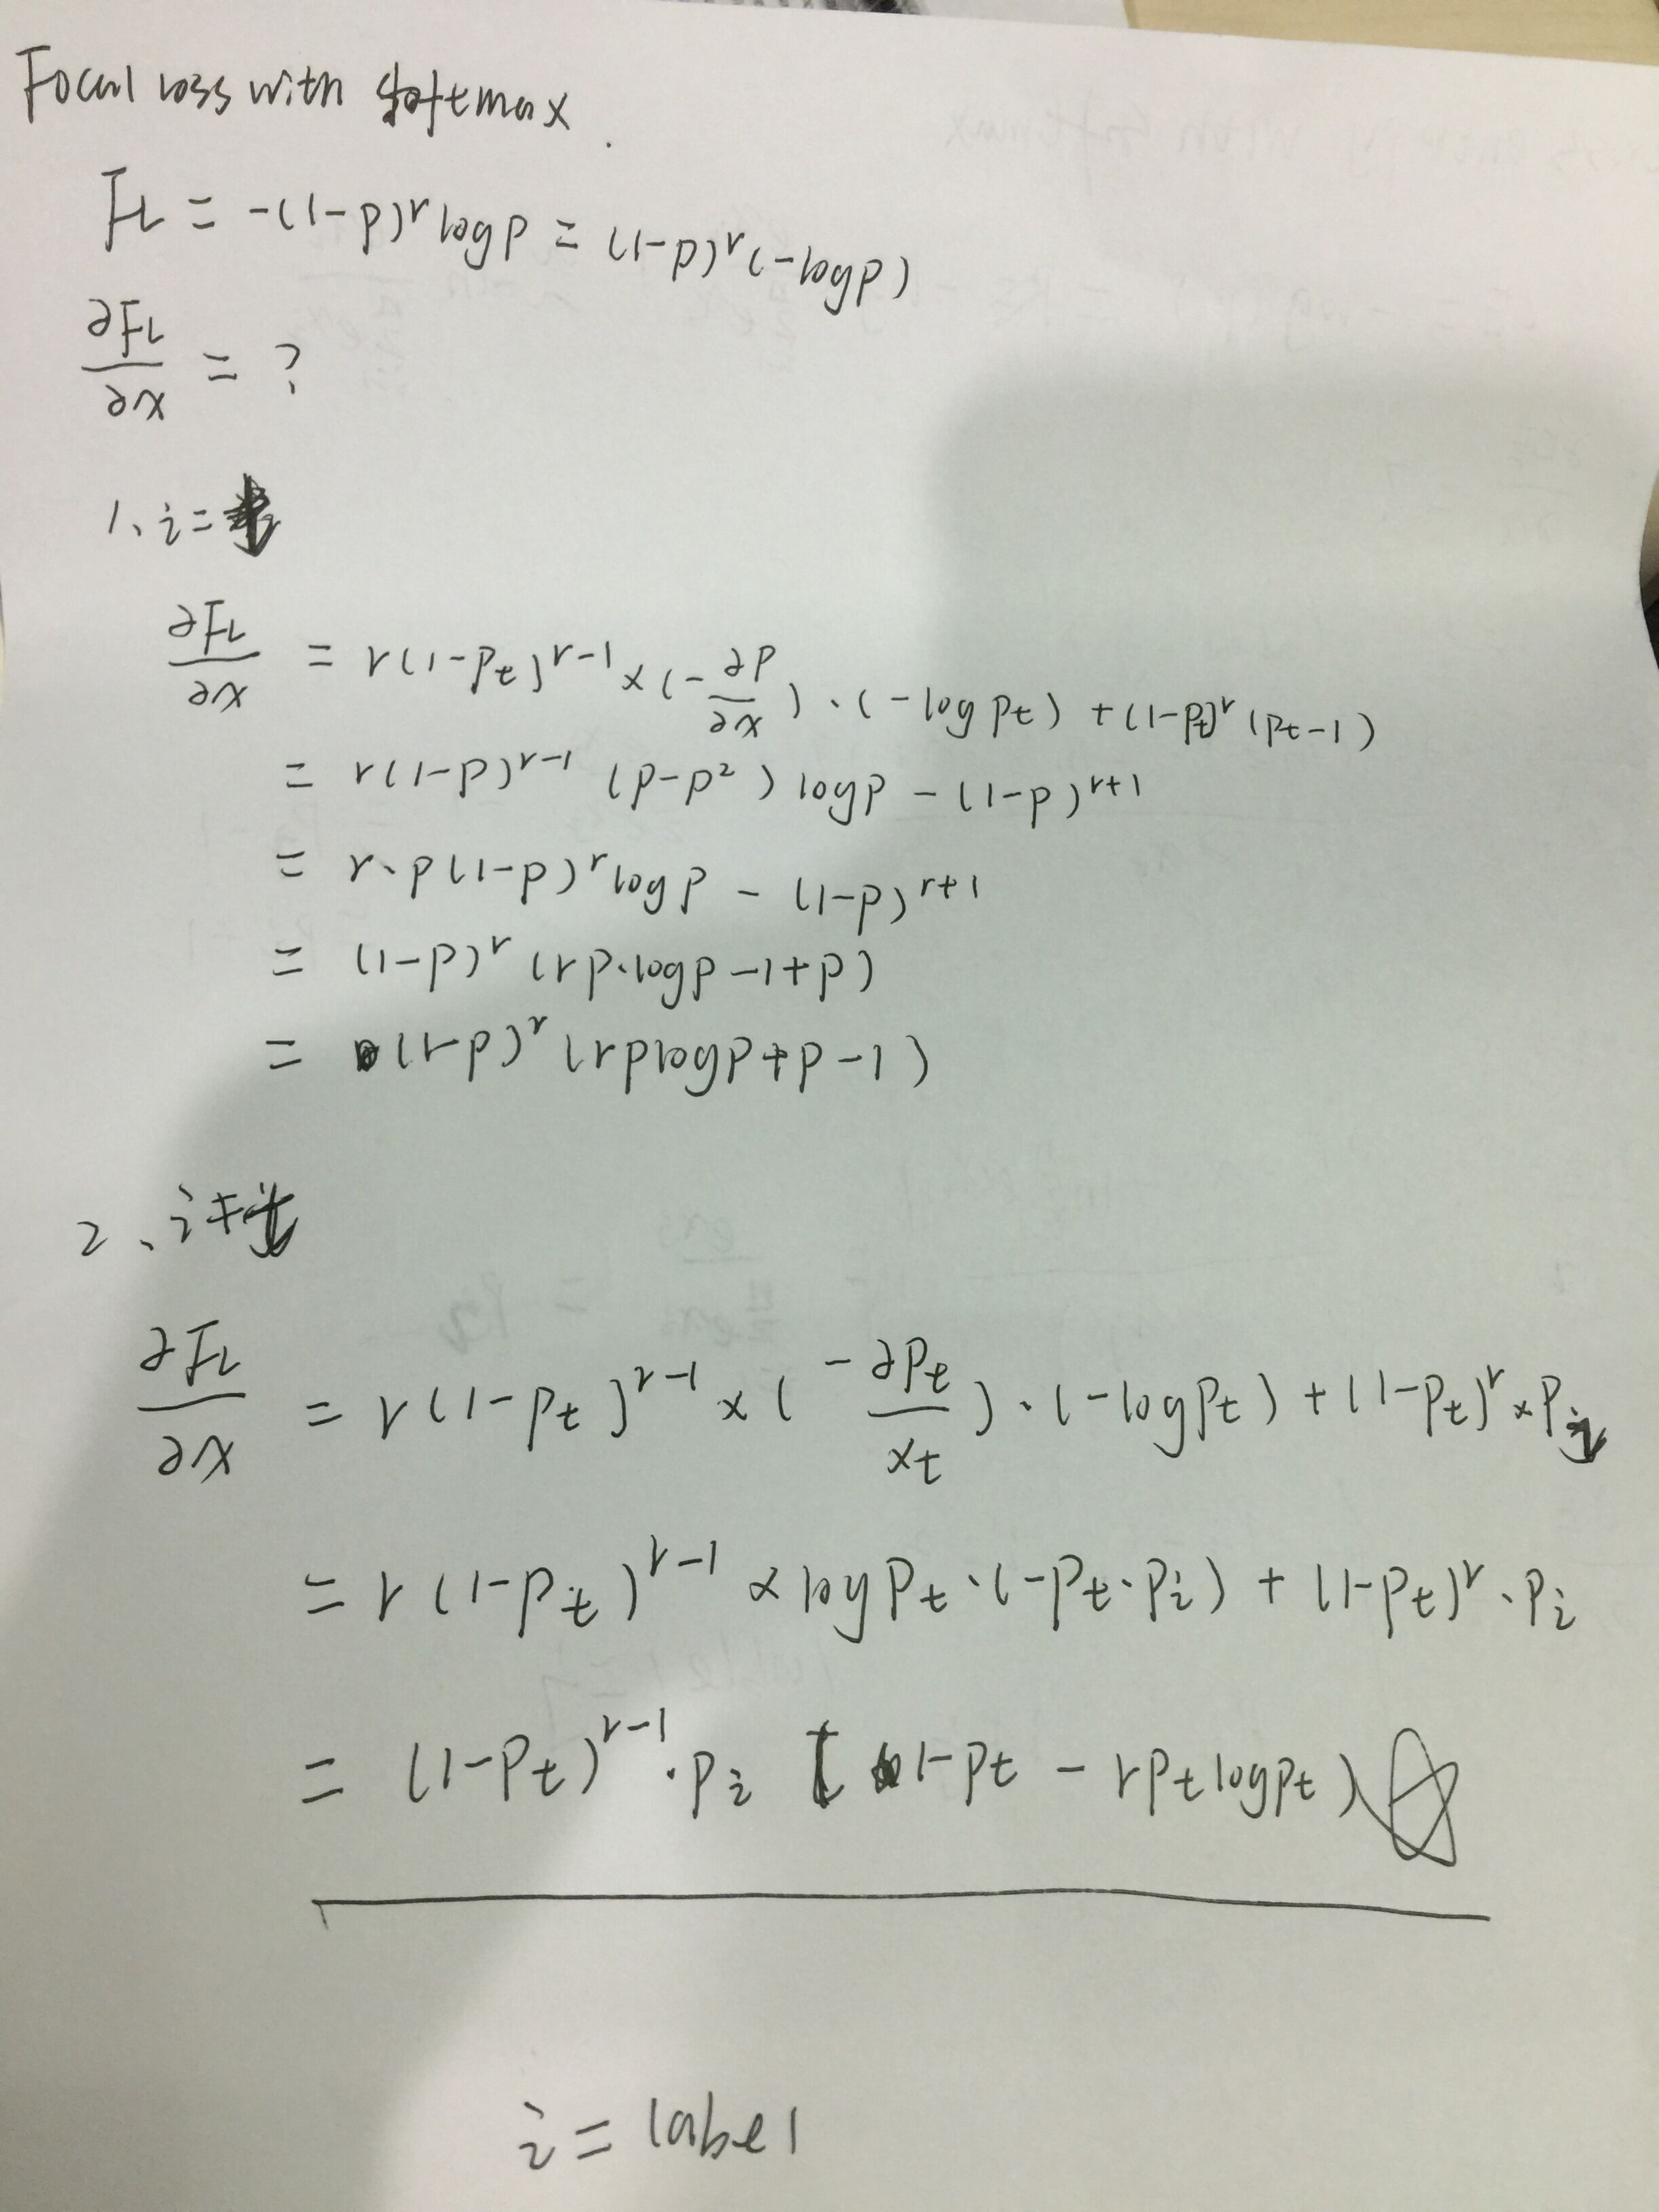 Focal loss with softmax.
FL = -(1-p)^r log p = (1-p)^r (-log p)
∂FL/∂x = ?
1、i = t
∂FL/∂x = r(1-p_t)^{r-1} × (-∂p/∂x) · (-log p_t) + (1-p_t)^r (p_t-1)
= r(1-p)^{r-1} (p-p²) log p - (1-p)^{r+1}
= r·p(1-p)^r log p - (1-p)^{r+1}
= (1-p)^r (rp·log p -1+p)
= (1-p)^r (rp log p + p - 1)
2、i ≠ t
∂FL/∂x = r(1-p_t)^{r-1} × (-∂p_t/x_t) · (-log p_t) + (1-p_t)^r × p_i
= r(1-p_t)^{r-1} × log p_t · (-p_t·p_i) + (1-p_t)^r · p_i
= (1-p_t)^{r-1} · p_i (1-p_t - rp_t log p_t)
i = label